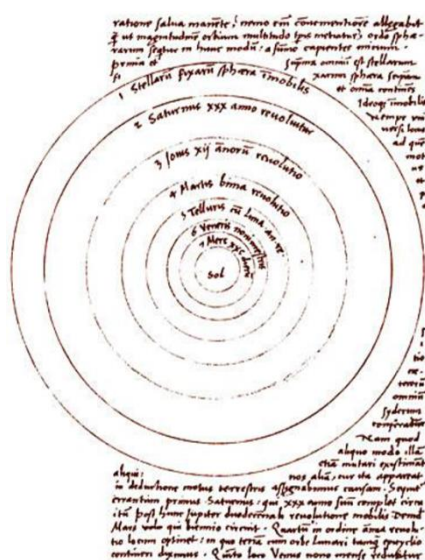 ratione salua manente: nemo em̄ conuenientiore allegabit
q̄ ut magnitudinem orbium multitudo tp̄is metiatur, ordo sphę-
rarum sequitur in hunc modū: a summo capientes initium.
prima et suprema omniū est stellarum
fixarum sphæra seipsam
et omnia continens
Ideoq̨ īmobilis
Nempe uni
uersi locus
ad quē
mot
1 Stellarū fixarū sphæra imobilis
2 Saturnus xxx anno reuoluitur
3 Jouis xij annorū reuolutio
4 Martis bima reuolutio
5 Telluris cū luna an. re.
6 Veneris nonimestris
7 Merc xxc dierū
Sol
tio
omnium
Syderum
temperatur
Nam quod
aliquo modo illā
etiā mutari existimāt
aliqui: nos aliā, cur ita appareat
in deductione motus terrestris assignabimus causam. Sequit
errantium primus Saturnus: qui xxx anno suū complet circu
itū post hunc Jupiter duodecennali reuolutione mobilis Deinde
Mars uolu qui biennio circuit. Quartū in ordine annua reuolu-
tio locum optinet: in qua terrā cum orbe lunari tanq̄ epicyclio
contineri diximus. Quinto loco Venus nono mense reducitur